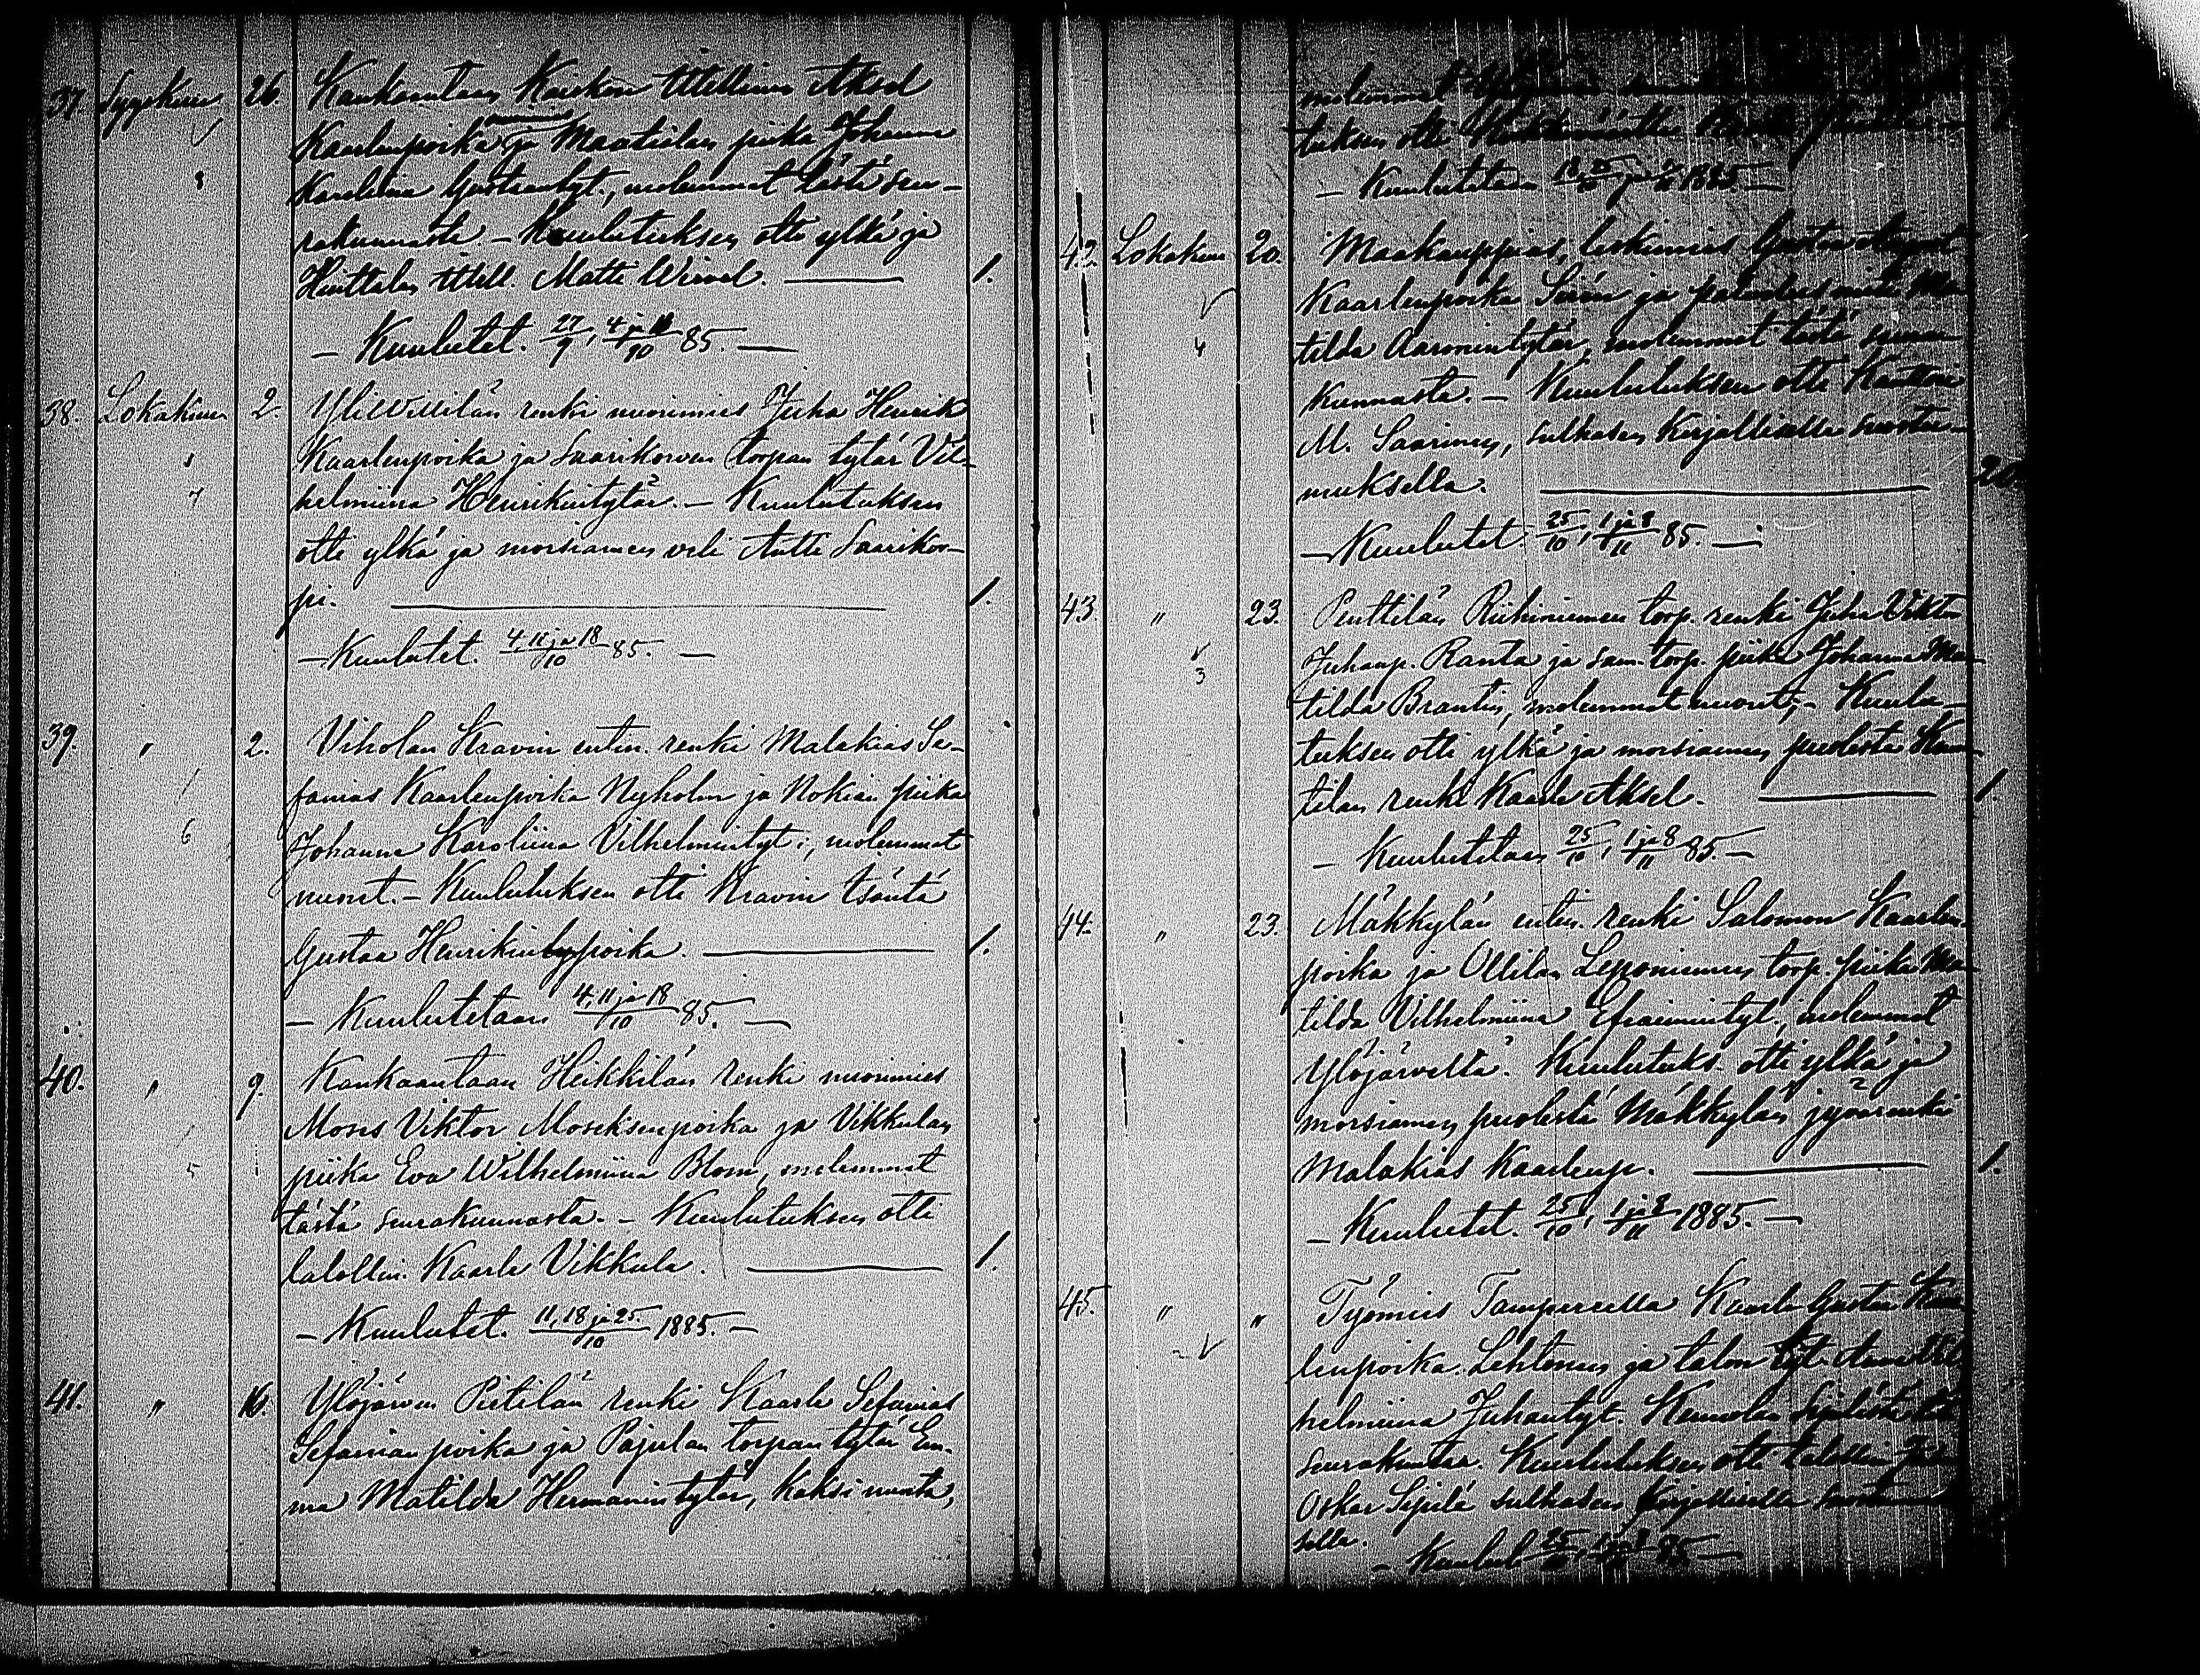 37. Syyskuu 26. Kankantaan Kaiskon ittellinen Aksel
Kaarlenpoika ja Maatialan piika Johanna
Karoliina Gustaantyt., molemmat tästä seu-
8
rakunnasta. – Kuulutuksen otti ylkä ja
Huittalan ittell. Matti Wirvel. 1.
– Kuulutet. 27/9, 4 ja 11/10 85. –
38. Lokakuu 2. YliWillilän renki nuorimies Juha Henrik
Kaarlenpoika ja Saarikorven torpan tytär Vil-
7
helmiina Henrikintytär. – Kuulutuksen
otti ylkä ja morsiamen veli Antti Saarikor-
pi. 1.
– Kuulutet. 4, 11 ja 18/10 85. –
39. " 2. Viholan Kravin entin. renki Malakias Se-
fanias Kaarlenpoika Nyholm ja Nokian piika
6
Johanna Karoliina Vilhelmintyt:, molemmat
nuoret. – Kuulutuksen otti Kravin isäntä
Gustaa Henrikinpoika. 1.
– Kuulutetaan 4, 11 ja 18/10 85. –
40. " 9. Kankaantaan Heikkilän renki nuorimies
Moses Viktor Moseksenpoika ja Vikkulan
5
piika Eva Wilhelmiina Blom, molemmat
tästä seurakunnasta. – Kuulutuksen otti
talollin. Kaarle Vikkula. 1.
– Kuulutet. 11, 18 ja 25/10 1885. –
41. " 16. Ylöjärven Pietilän renki Kaarle Sefanias
Sefanianpoika ja Pajulan torpan tytär Em-
ma Matilda Hermanintytär, kaksi nuorta,
molemmat
tuksen otti
– Kuulutetaan 18, 25/10 ja 1/11 1885 –
42. Lokakuu 20. Maakauppias, leskimies Gustav August
Kaarlenpoika Sirén ja palvelus neiti Ma-
4
tilda Aaronintytär, molemmat tästä seura-
kunnasta. – Kuulutuksen otti Kanttori
M. Saarinen, sulhasen kirjallisella suostu-
muksella. 20.
– Kuulutet. 25/10, 1 ja 8/11 85. –
43. " 23. Penttilän Riihiniemen torp. renki Juha Viktor
Juhanp. Ranta ja sam. torp. piika Johanna Ma-
3
tilda Brantin, molemmat nuoret; – Kuulu-
tuksen otti ylkä ja morsiamen puolesta
tilan renki Kaarle Aksel. 1.
– Kuulutetaan 25/10, 1 ja 8/11 85. –
44. " 23. Mäkkylän entin. renki Salomon Kaarlen-
poika ja Ollilan Leponiemen torp. piika Ma-
tilda Vilhelmiina Efraimintyt., molemmat
Ylöjärveltä. Kuulutuks. otti ylkä ja
morsiamen puolesta Mäkkylän jyvärenki
Malakias Kaarlenp. 1.
– Kuulutet. 25/10, 1 ja 8/11 1885. –
45. " " Työmies Tampereella Kaarle Gustaa Kaar-
lenpoika Lehtonen ja talon tyt. Anna Vil-
helmiina Juhantyt.
seurakuntaa. Kuulutuksen otti talollin.
Oskar Sipilä sulhasen kirjallisella suostumuk-
sella.
– Kuulut. 25/10, 1 ja 8/11 85 –